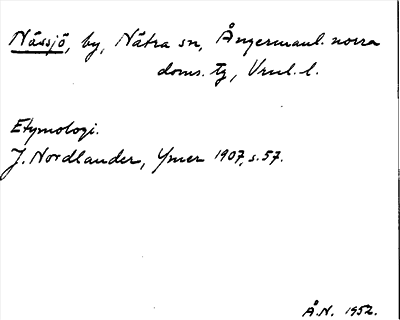 Nässjö, by, Nätra sn, Ångermanl. norra
doms. tg, Vrnl. l.
Etymologi.
J. Nordlander, Ymer 1907, s. 57.
Å.N. 1952.